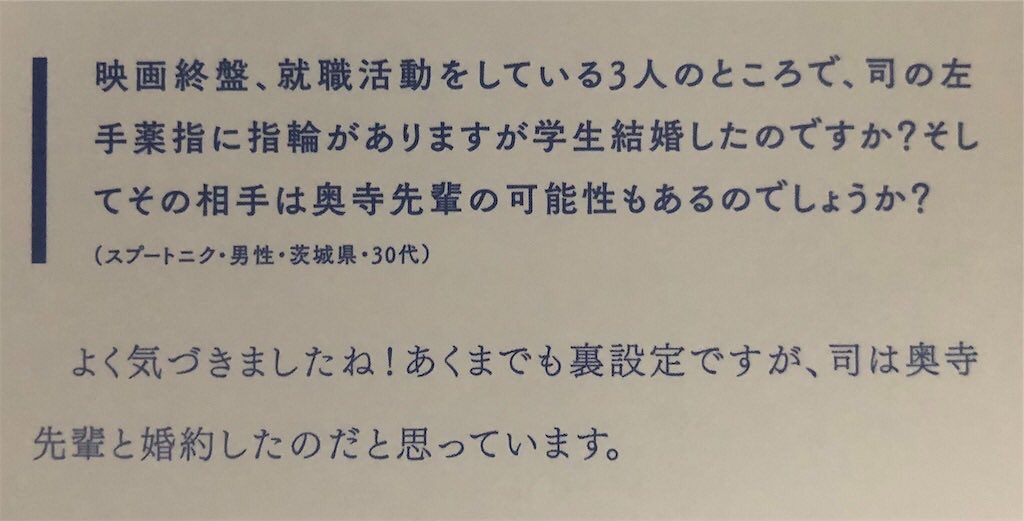 映画終盤、就職活動をしている3人のところで、司の左
手薬指に指輪がありますが学生結婚したのですか?そし
てその相手は奥寺先輩の可能性もあるのでしょうか?
(スプートニク・男性・茨城県・30代)
よく気づきましたね!あくまでも裏設定ですが、司は奥寺
先輩と婚約したのだと思っています。